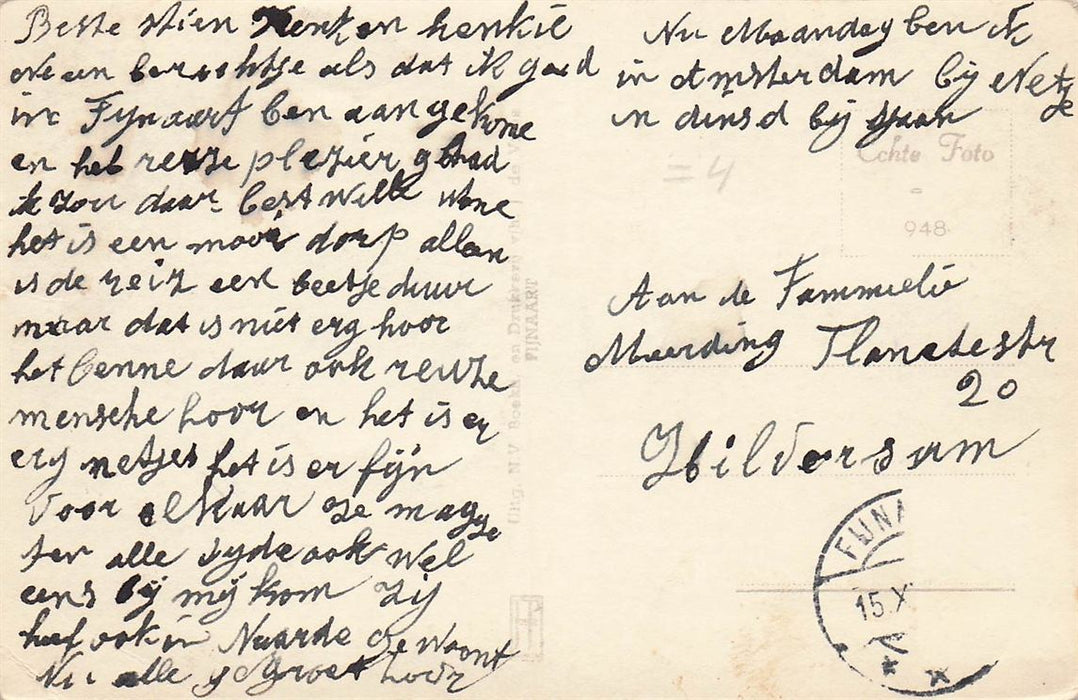 Beste stien Henk en henkie
een berichtje als dat ik goed
in Fijnaart ben aangekome
en het reuze plezier gehad
ik zou daar best wille wone
het is een mooi dorp alleen
is de reiz een beetje duur
maar dat is niet erg hoor
het benne daar ook reuze
mensche hoor en het is er
erg netjes het is er fijn
voor elkaar
ter alle tyde ook wel
eens by mij kom Zij
heef ook in Naarde gewoont
Nu alle gegroet hoor
Nu Maandag ben ik
in Amsterdam bij
in dinsd bij
Echte Foto
948
=4
Aan de Fammielie
Meerding
20
Hilversum
Uitg. N.V. Boek- en Drukkerij
FIJNAART
FIJNA
15.X